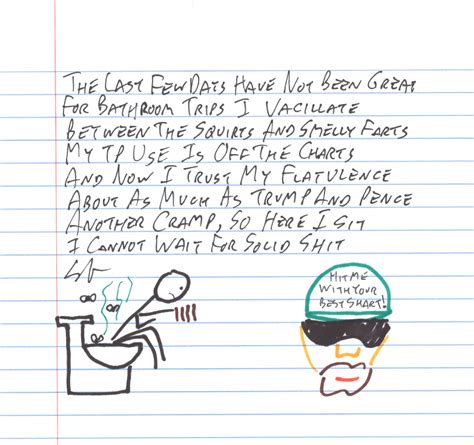 The Last Few Days Have Not Been Great
For Bathroom Trips I Vacillate
Between The Squirts And Smelly Farts
My TP Use Is Off The Charts
And Now I Trust My Flatulence
About As Much As Trump And Pence
Another Cramp, So Here I Sit
I Cannot Wait For Solid Shit
Hit Me
With Your
Best Shart!